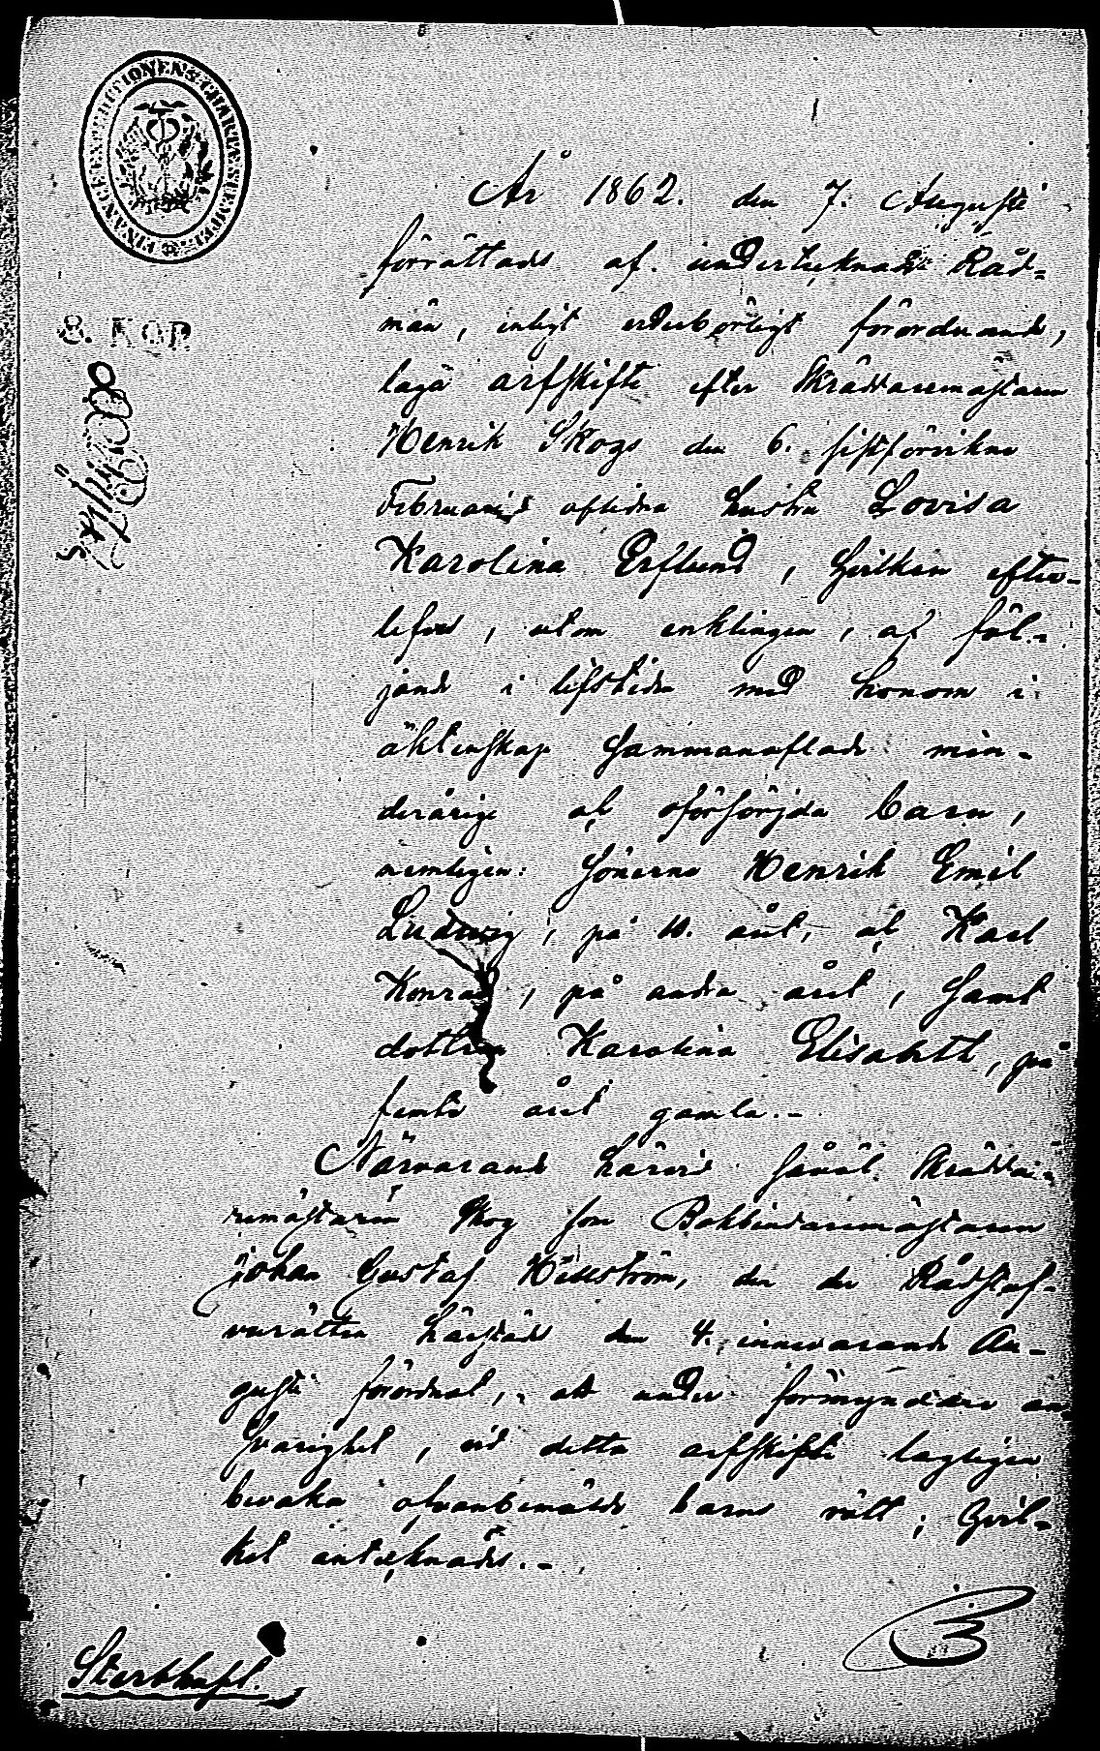 FINANCE EXPEDITIONENS CHARTÆ STEMPEL
8. KOP
År 1862. den 7. Augusti
förrättade af undertecknade Råd-
män, enligt vederbörligt förordnande,
laga arfskifte efter Skräddaremästaren
Henrik Skogs den 6. sistförvikne
Februarii aflidna hustru Lovisa
Karolina Erflund, hvilken efter-
lefves, utom enklingen, af föl-
jande i lifstiden med honom i
äktenskap sammanaflade min-
derårige och oförsörjda barn,
nemligen: Sönerne Henrik Emil
Ludwig, på 10. året, och Karl
Konrad, på andra året, samt
dottren Karolina Elisabeth, på
femte året gamla.-
Närvarande härvid såväl Skrädda-
remästaren Skog som Bokbindaremästaren
Johan Gustaf Hellström, den der Rådstuf-
vurätten härstäds den 4. innevarande Au-
gusti förordnat, att under förmyndare an-
svarighet, vid detta arfskifte lagligen
bevaka ofvanbenämde barns rätt; hvil-
ket antecknades.-
Sterbhuset.